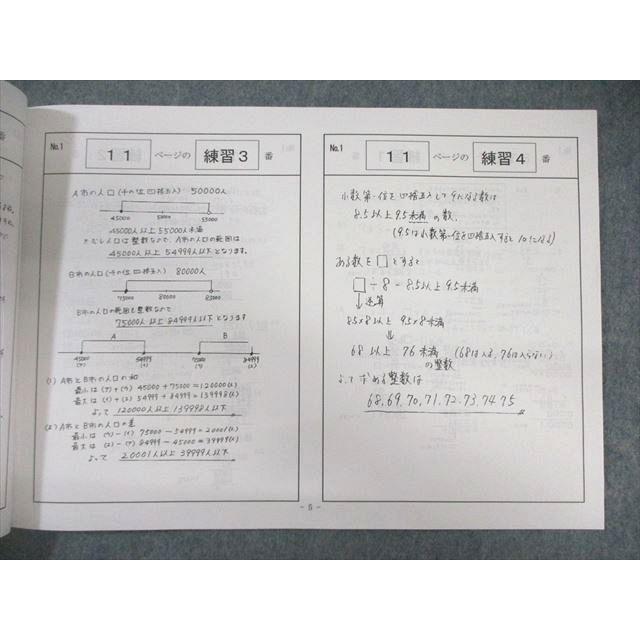 No.1
11 ページの 練習3 番
A市の人口(千の位四捨五入) 50000人
45000 50000 55000
45000人以上55000人未満
人口は整数なので、A市の人口の範囲は
45000人以上54999人以下となります。
B市の人口(千の位四捨五入) 80000人
75000 80000 85000
B市の人口の範囲も整数なので
75000人以上84999人以下となります
A B
45000 54999 75000 84999
(ア) (イ) (ウ) (エ)
(1) A市とB市の人口の和
最小は (ア)+(ウ) 45000+75000=120000(人)
最大は (イ)+(エ) 54999+84999=139998(人)
よって 120000人以上139998人以下
(2) A市とB市の人口の差
最小は (ウ)-(イ) 75000-54999=20001(人)
最大は (エ)-(ア) 84999-45000=39999(人)
よって 20001人以上39999人以下
No.1
11 ページの 練習4 番
小数第一位を四捨五入して9になる数は
8.5以上9.5未満の数。
(9.5は小数第一位を四捨五入すると10になる)
ある数を□とすると
□÷8=8.5以上9.5未満
↓逆算
8.5×8以上 9.5×8未満
⇓
68以上 76未満 (68は入る、76は入らない)
の整数
よって求める整数は
68,69,70,71,72,73,74,75
- 5 -